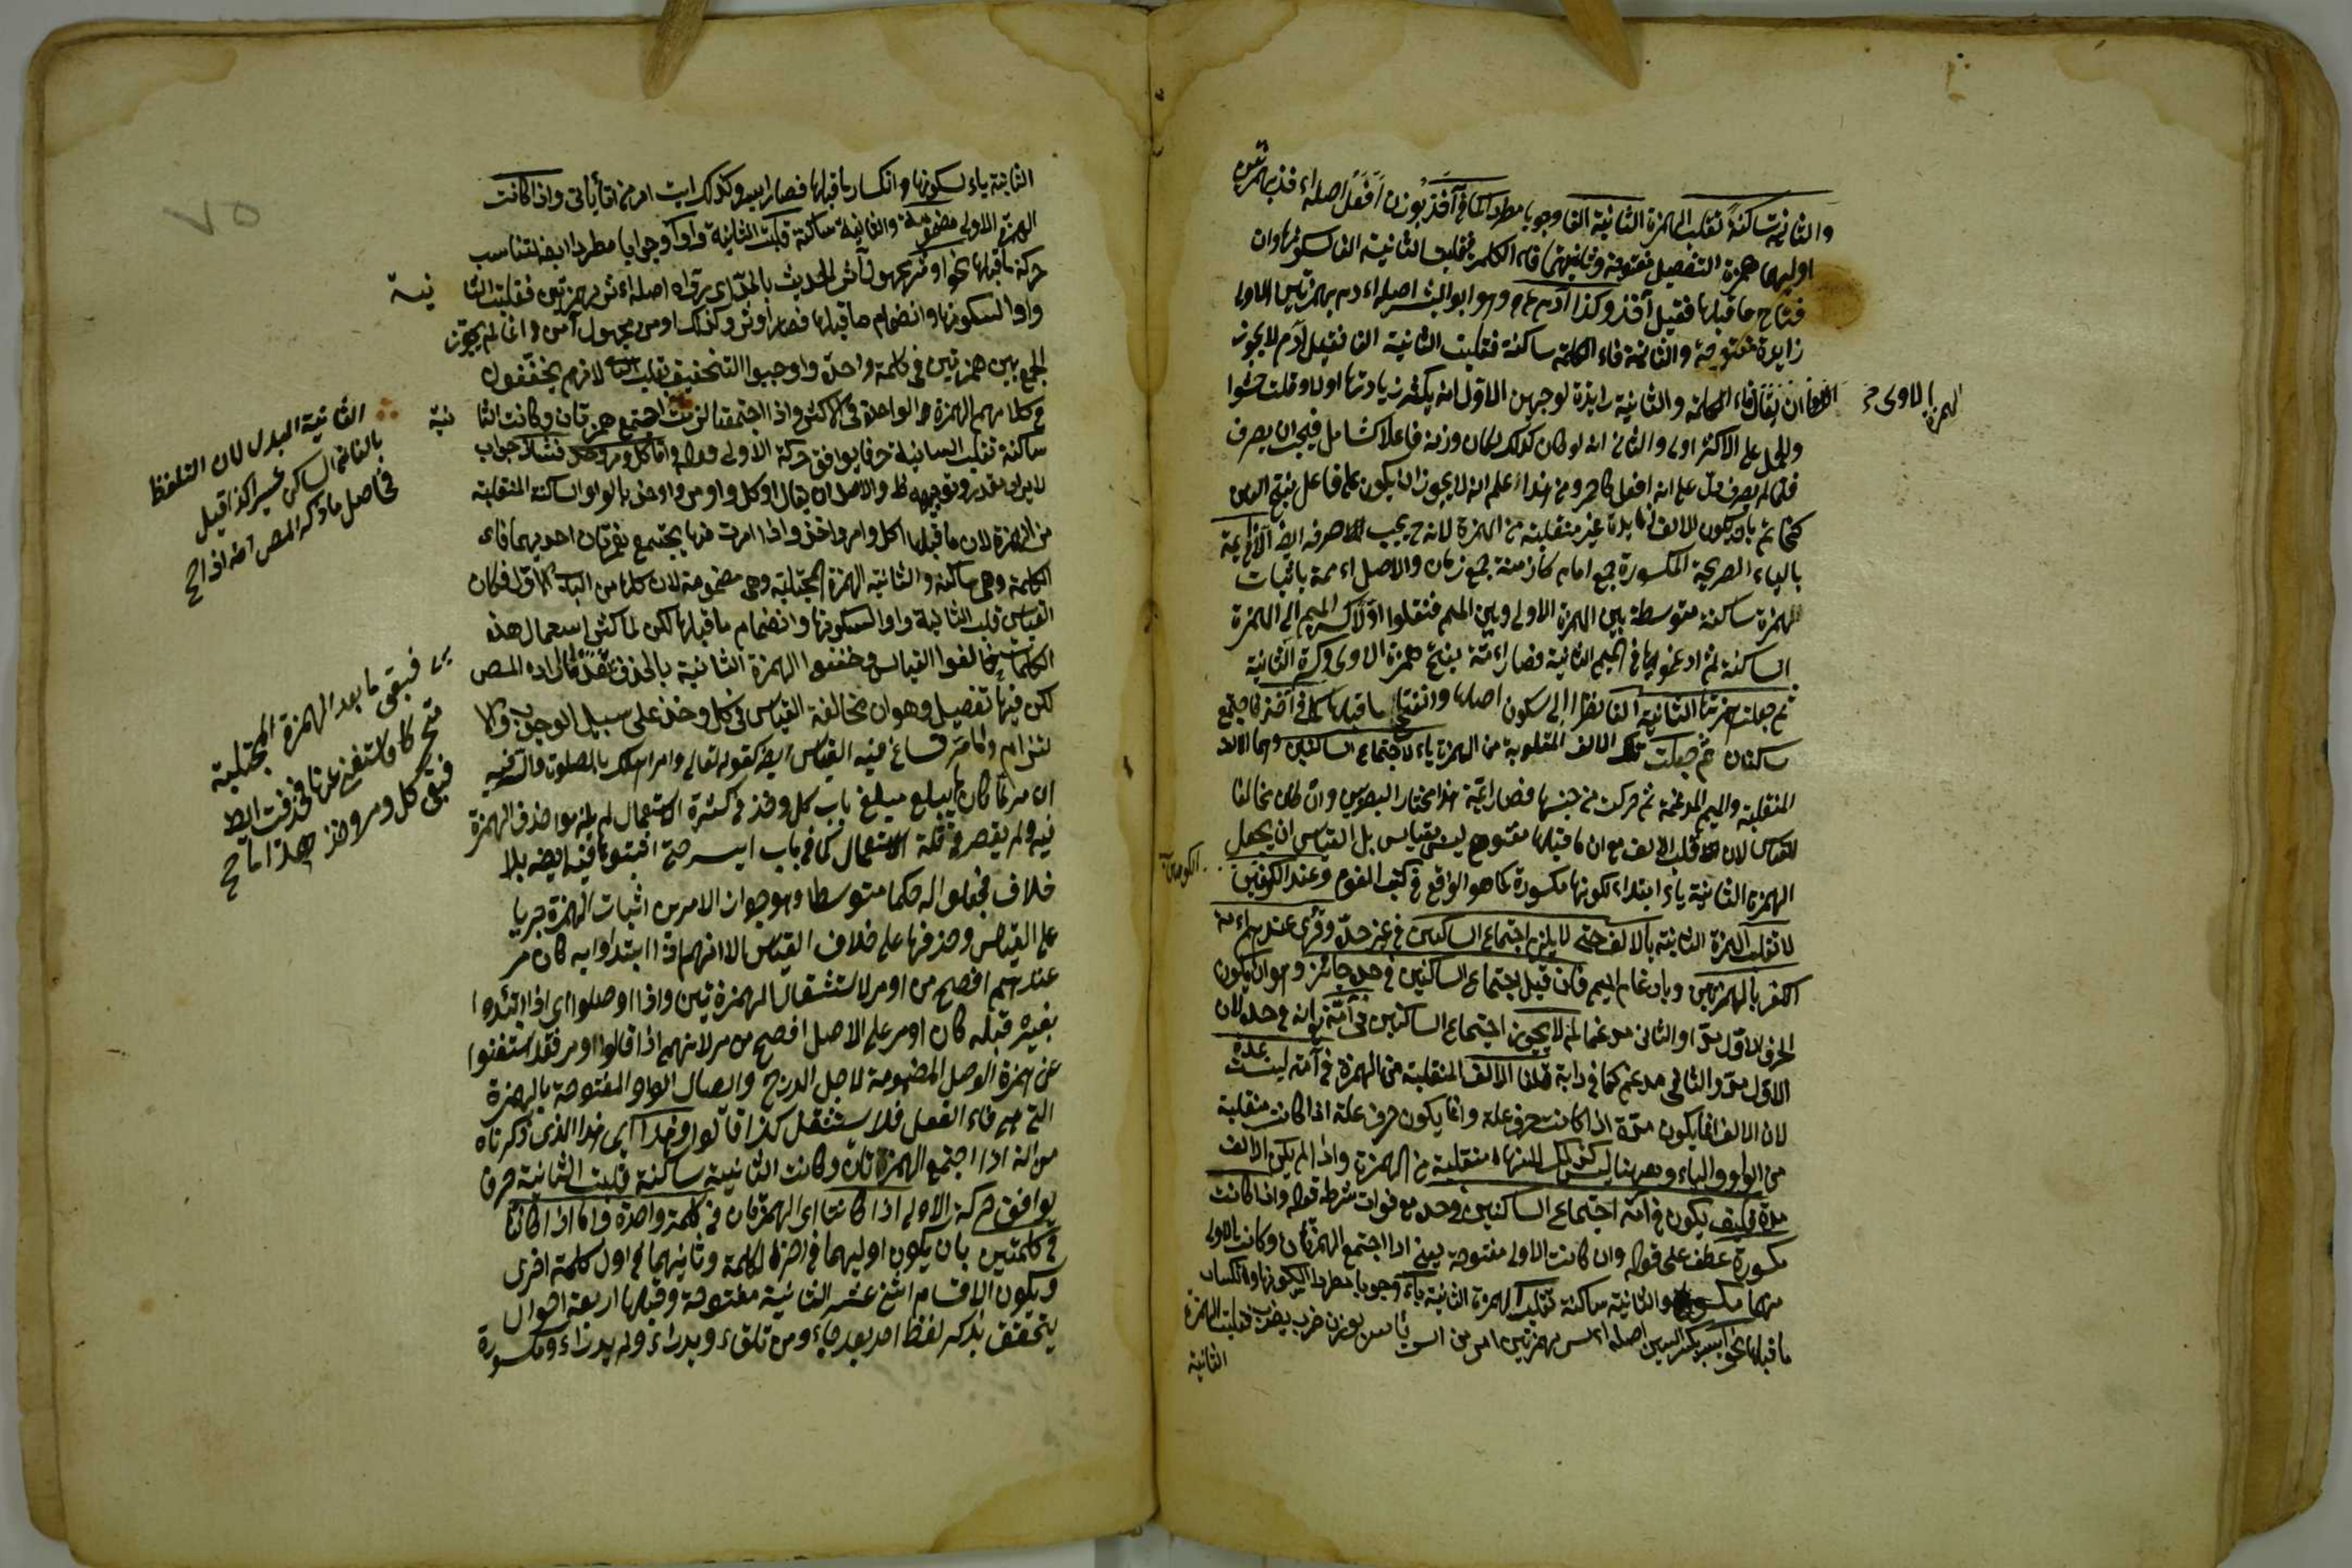 والثانية ساكنة تقلب الهمزة الثانية الفا وجوبا مطردا كما في آخذ بوزن أفعل اصله اءخذ بهمزتين
اوليهما همزة التفضيل مفتوحة وثانيتهما فاء الكلمة فقلبت الثانية الفا لسكونها وان
فتاح ما قبلها فقيل آخذ وكذا آدم وهو ابو البشر اصله اءدم بهمزتين الاولى
زايدة مفتوحة والثانية فاء الكلمة ساكنة فقلبت الثانية الفا فقيل آدم لا يجوز
الهمزة الاولى
ان يقال فاء الكلمة والثانية زايدة لوجهين الاول انه يكثر زيادتها اولا وقلت حشوا
والحمل على الاكثر اولى والثاني انه لو كان كذلك لكان وزنه فاعلا كشامل فيجب ان يصرف
فلما لم يصرف دل على انه افعل كاحمر ومن هذا علم انه لا يجوز ان يكون على فاعل بفتح العين
كخاتم بان يكون الالف زايدة غير منقلبة من الهمزة لانه يجب صرفه ايضا
بالياء الصريحة المكسورة جمع امام كازمنة جمع زمان والاصل اءممة باثبات
الهمزة ساكنة متوسطة بين الهمزة الاولى وبين الميم فنقلوا اولا كسر الميم الى الهمزة
الساكنة ثم ادغموها في الميم الثانية فصار اءمة بفتح همزة الاولى وكسرة الثانية
ثم جعلت همزتها الثانية الفا نظرا الى سكون اصلها وانفتاح ما قبلها كما في آخذ فاجتمع
ساكنان ثم جعلت تلك الالف المقلوبة من الهمزة ياء لاجتماع الساكنين وهما الالف
المنقلبة والميم المدغمة ثم حركت من جنسها فصار ايمة هذا مختار البصريين وان كان مخالفا
للقياس لان قلب الالف مع ان ما قبلها مفتوح ليس بقياس بل القياس ان يجعل
الهمزة الثانية ياء ابتداء لكونها مكسورة كما هو الواقع في كتب القوم وعند الكوفيين
لا تقلب الهمزة الثانية بالالف حتى لا يلزم اجتماع الساكنين في غير حده وقرئ عندهم اءمة
الكفر بالهمزتين وبادغام الميم فان قيل اجتماع الساكنين في حده جائز وهو ان يكون
الحرف الاول مدا والثاني مدغما لم لا يجوز اجتماع الساكنين في آمة انه في حده لان
الاول مدة والثاني مدغم كما في دابة قلنا الالف المنقلبة من الهمزة في آمة ليست بمدة
لان الالف انما يكون مدة اذا كانت حرف علة وانما يكون حرف علة اذا كانت منقلبة
من الواو والياء وههنا ليس كذلك لانها منقلبة من الهمزة واذا لم يكن الالف
مدة فكيف يكون في آمة اجتماع الساكنين في حده مع فوات شرطه قوله واذا كانت
مكسورة عطف على قوله وان كانت الاولى مفتوحة يعني اذا اجتمع الهمزتان وكانت الاولى
منهما مكسورة والثانية ساكنة تقلب الهمزة الثانية ياء وجوبا مطردا لسكونها وانكسار
ما قبلها نحو ايسر بكسر السين اصله اءسر بهمزتين امر من بوزن ضرب يضرب فقلبت الهمزة
الثانية
الثانية ياء لسكونها وانكسار ما قبلها فصار ايسر وكذلك ايت امر من اتى ياتى واذا كانت
الهمزة الاولى مضمومة والثانية ساكنة قلبت الثانية واوا وجوبا مطردا ايضا لتناسب
حركة ما قبلها نحو اوثر مجهول آثر الحديث بالمد اصله اءثر بهمزتين فقلبت الثانية
واوا لسكونها وانضمام ما قبلها فصار اوثر وكذلك اومن مجهول آمن وانما لم يجوز
الجمع بين همزتين في كلمة واحدة واوجبوا التخفيف بقلب الثانية لانهم يخففون
في كلامهم الهمزة الواحدة في الاكثر واذا اجتمع همزتان وكانت الثانية
ساكنة تقلب الثانية حرفا يوافق حركة الاولى قوله واما كل ومر وخذ فشاذ جواب
مقدر وتوجيهه ظ والاصل ان يقال اوكل واومر واوخذ بالواو الساكنة المنقلبة
من الهمزة لان ما قبلها اكل وامر واخذ واذا امرت منها يجتمع همزتان احديهما فاء
الكلمة وهي ساكنة والثانية الهمزة المجتلبة وهي مضمومة لان كلها من الباب الاول فكان
القياس قلب الثانية واوا لسكونها وانضمام ما قبلها لكن لما كثر استعمال هذه
الكلمات خالفوا القياس وخففوا الهمزة الثانية بالحذف المص
لكن فيها تفصيل وهو ان مخالفة القياس في كل وخذ على سبيل الوجوب والا
لتزام واما مر فساغ فيه القياس ايضا كقوله تعالى وامر اهلك بالصلوة
ان مر لما كان لم يبلغ مبلغ باب كل وخذ في كثرة الاستعمال لم يلتزموا حذف الهمزة
فيه ولم يقصر في قلة الاستعمال كما في باب ايسر حتى اثبتوها فيه ايضا بلا
خلاف فجعلوا له حكما متوسطا وهو جواز الامرين اثبات الهمزة جريا
على القياس وحذفها على خلاف القياس الا انهم اذا ابتداوا به كان مر
عندهم افصح من اومر لاستثقال الهمزتين واذا اوصلوا اى اذا ابتدءوا
بغيره قبله كان اومر على الاصل افصح من مر لانهم اذا قالوا اومر فقد استغنوا
عن همزة الوصل المضمومة لاجل الدرج وايصال الواو المفتوحة بالهمزة
التي هي فاء الفعل فلا يستثقل كذا قالوا وهذا اى هذا الذى ذكرناه
من انه اذا اجتمع الهمزتان وكانت الثانية ساكنة قلبت الثانية حرفا
يوافق حركة الاولى اذا كانتا اى الهمزتان في كلمة واحدة واما اذا كانتا
في كلمتين بان يكون اوليهما في اخر الكلمة وثانيهما في اول كلمة اخرى
ويكون الاقسام اثنى عشر الثانية مفتوحة وقبلها اربعة احوال
يتحقق بذكر لفظ احد بعد جاء ومن تلقاء ومكسورة
الثانية المبدل لان التلفظ
بالفاتم الساكن عسير كذا قيل
في اصل ما ذكره المص انه اذا
فيبقى ما بعد الهمزة المجتلبة
متحركا فاستغنى عنها فحذفت ايضا
فبقى كل ومر وخذ هكذا
٧٥